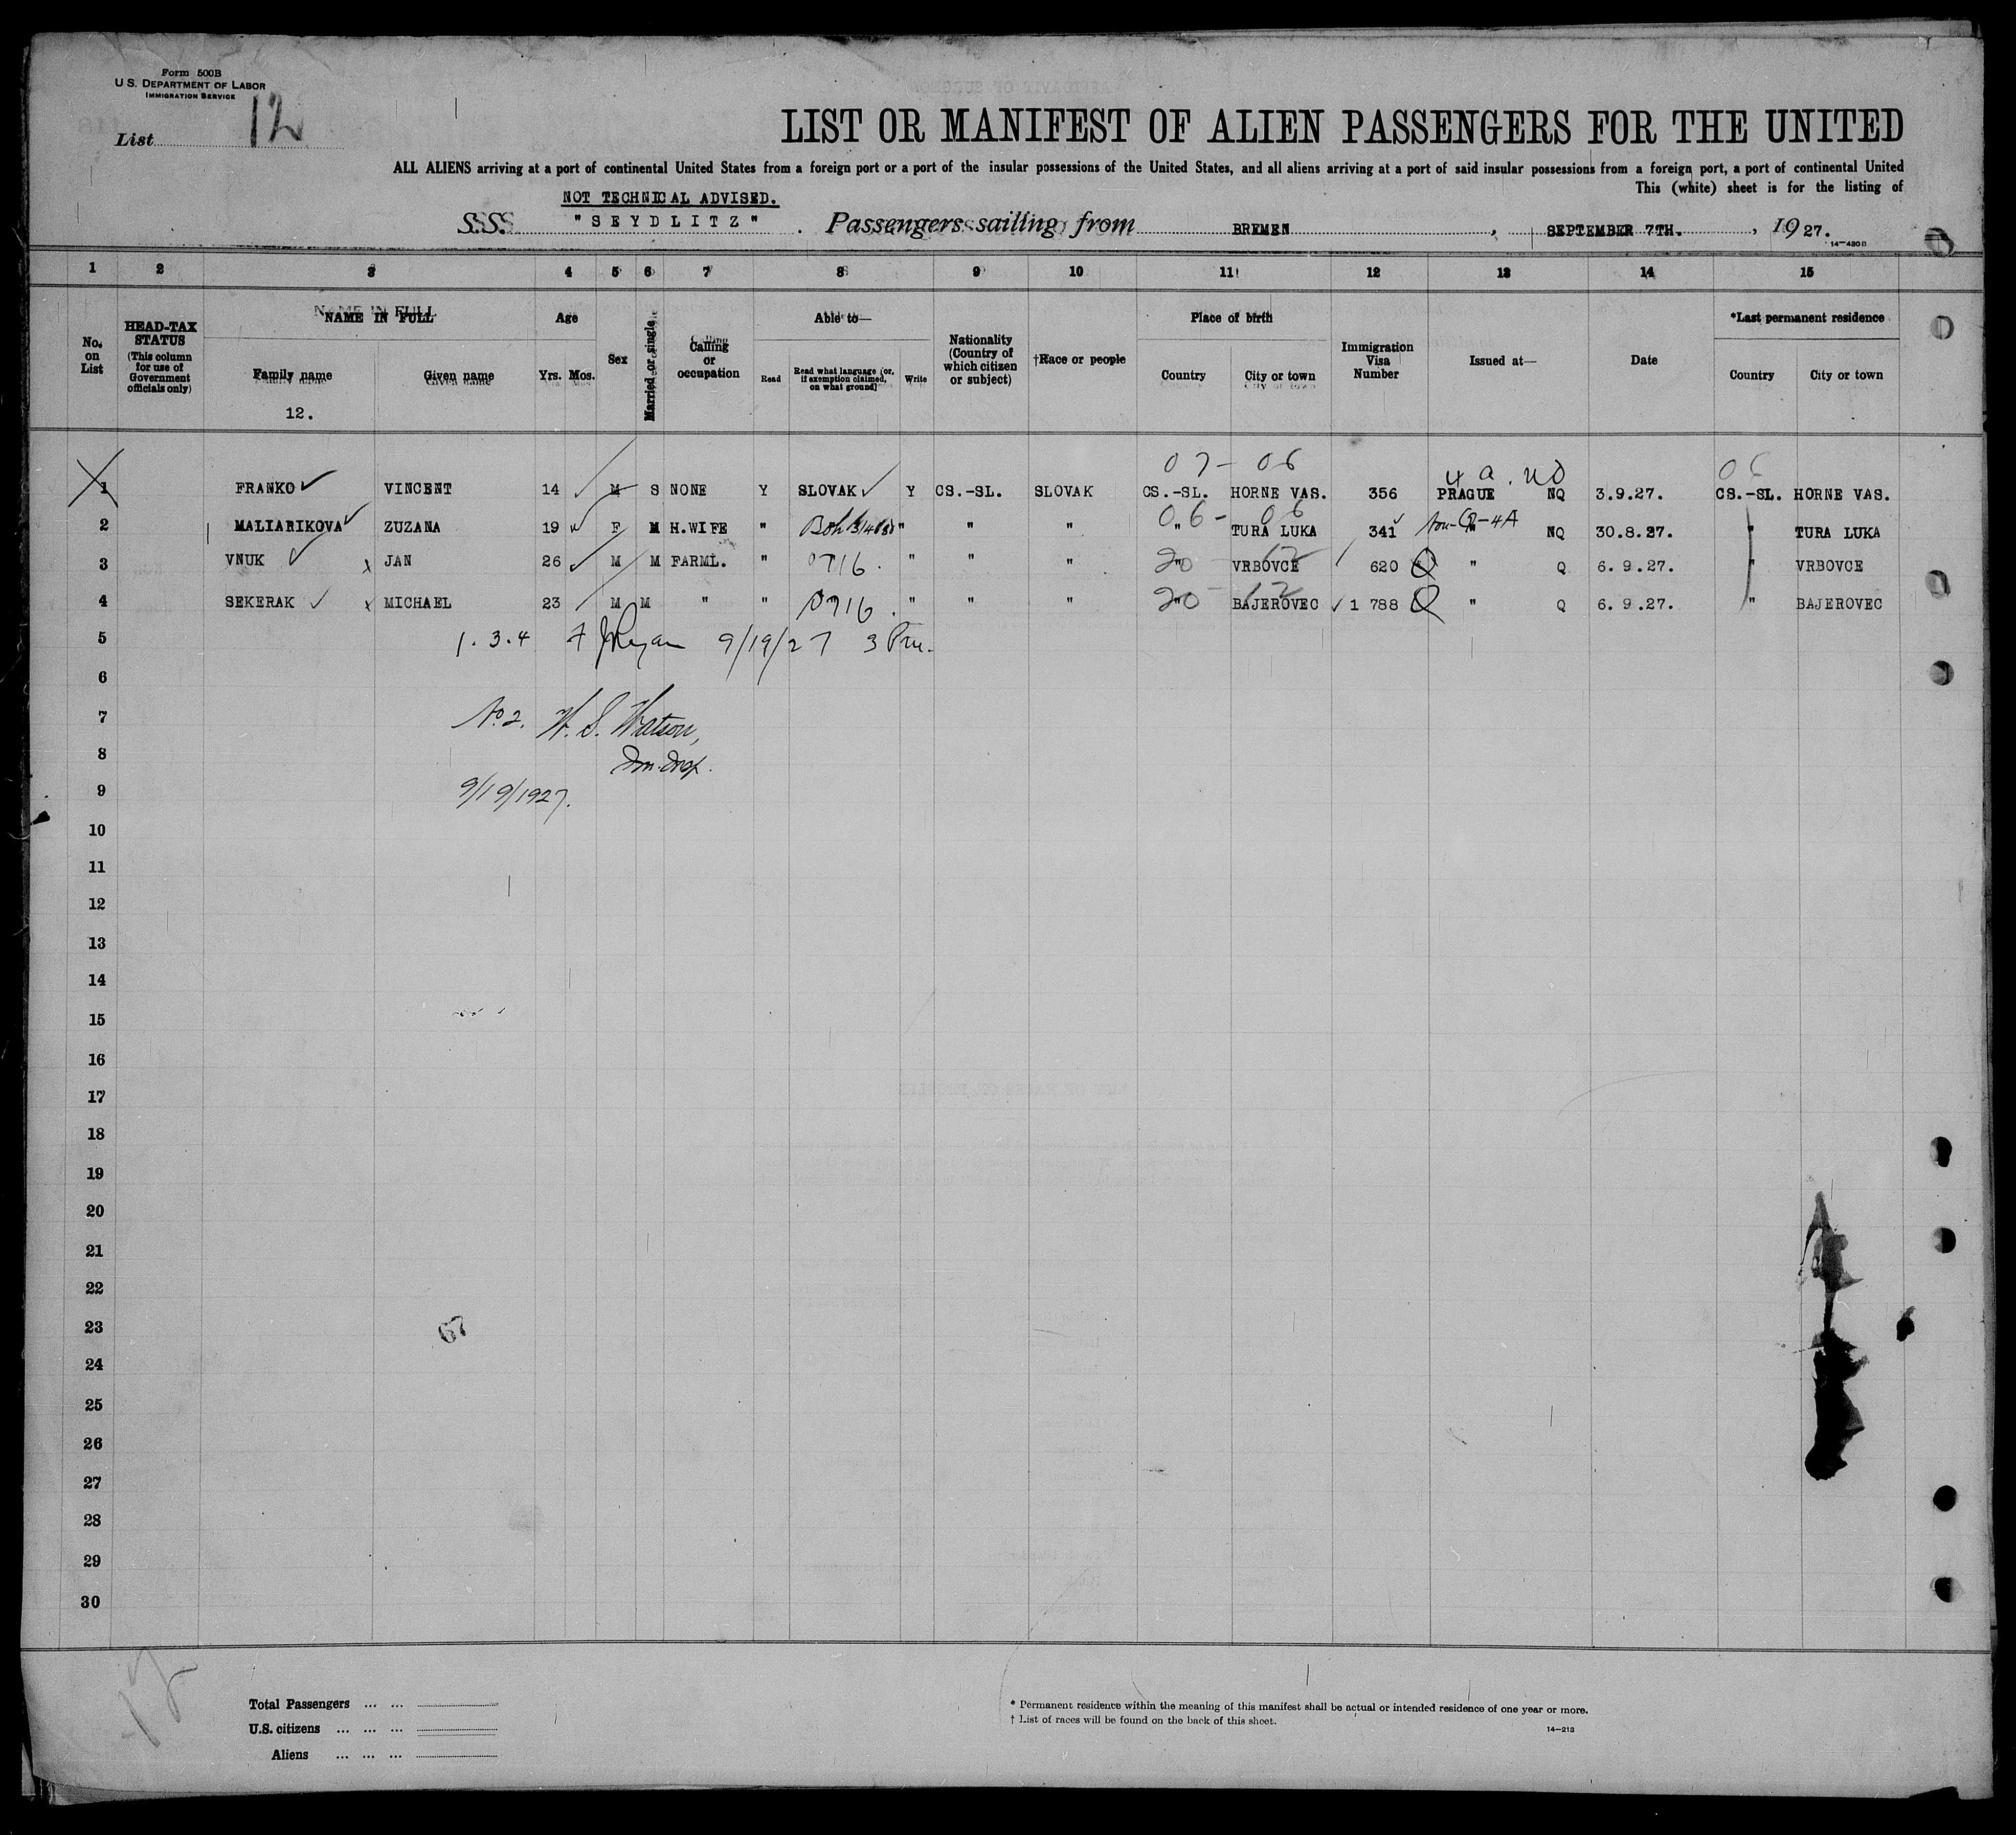 Form 500B
U.S. DEPARTMENT OF LABOR
IMMIGRATION SERVICE
List 12
LIST OR MANIFEST OF ALIEN PASSENGERS FOR THE UNITED
ALL ALIENS arriving at a port of continental United States from a foreign port or a port of the insular possessions of the United States, and all aliens arriving at a port of said insular possessions from a foreign port, a port of continental United
This (white) sheet is for the listing of
NOT TECHNICAL ADVISED.
S.S. "SEYDLITZ". Passengers sailing from BREMEN, SEPTEMBER 7TH., 1927.
14—430 B
1 2 3 4 5 6 7 8 9 10 11 12 13 14 15
No. on List
HEAD-TAX STATUS (This column for use of Government officials only)
NAME IN FULL
Family name
Given name
12.
Age
Yrs. Mos.
Sex
Married or single
Calling or occupation
Able to—
Read
Read what language (or, if exemption claimed, on what ground)
Write
Nationality (Country of which citizen or subject)
†Race or people
Place of birth
Country
City or town
Immigration Visa Number
Issued at—
Date
*Last permanent residence
Country
City or town
07- 06 4a. 06
1 FRANKO VINCENT 14 M S NONE Y SLOVAK Y CS.-SL. SLOVAK CS.-SL. HORNE VAS. 356 PRAGUE NQ 3.9.27. CS.-SL. HORNE VAS.
06- 06
2 MALIARIKOVA ZUZANA 19 F M H.WIFE " Boh " " " " TURA LUKA 341 non-Q-4A " NQ 30.8.27. " TURA LUKA
3 VNUK x JAN 26 M M FARML. " 0716. " " " 20 " 12 VRBOVCE 620 Q " Q 6.9.27. " VRBOVCE
4 SEKERAK x MICHAEL 23 M M " " 0716. " " " 20 " 12 BAJEROVEC 1 788 Q " Q 6.9.27. " BAJEROVEC
5 1.3.4 F J Ryan 9/19/27 3 Pm.
6
7 No. 2. W. S. Watson,
8 Im. Insp.
9 9/19/1927.
10
11
12
13
14
15
16
17
18
19
20
21
22
23 67
24
25
26
27
28
29
30
12
Total Passengers ... ...
U.S. citizens ... ... ...
Aliens ... ... ...
* Permanent residence within the meaning of this manifest shall be actual or intended residence of one year or more.
† List of races will be found on the back of this sheet.
14—213